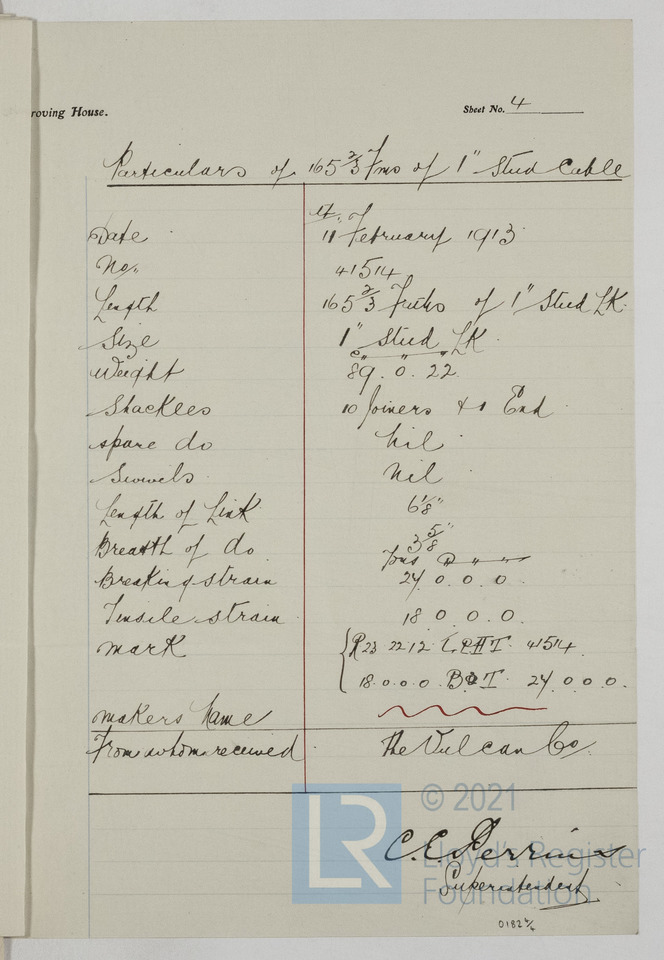 roving House.
Sheet No. 4
Particulars of 165 2/3 Fms of 1" Stud Cable
Date 11 February 1913
No. 41514
Length 165 2/3 Fms of 1" Stud LK.
Size 1" Stud LK.
Weight 89. 0. 22.
Shackles 10 Joiners & 1 End
spare do Nil
Swivels Nil
Length of Link 6 1/8"
Breadth of do 3 5/8"
Tons " " "
Breaking strain 27. 0. 0. 0.
Tensile strain 18 0. 0. 0.
Mark 22.12. L.P.H.T. 41514
18.0.0.0. B.O.T. 27.0.0.0.
Makers Name
From whom received The Vulcan Co.
C. E. Perrins
Superintendent
LR
© 2021
Lloyd's Register
Foundation